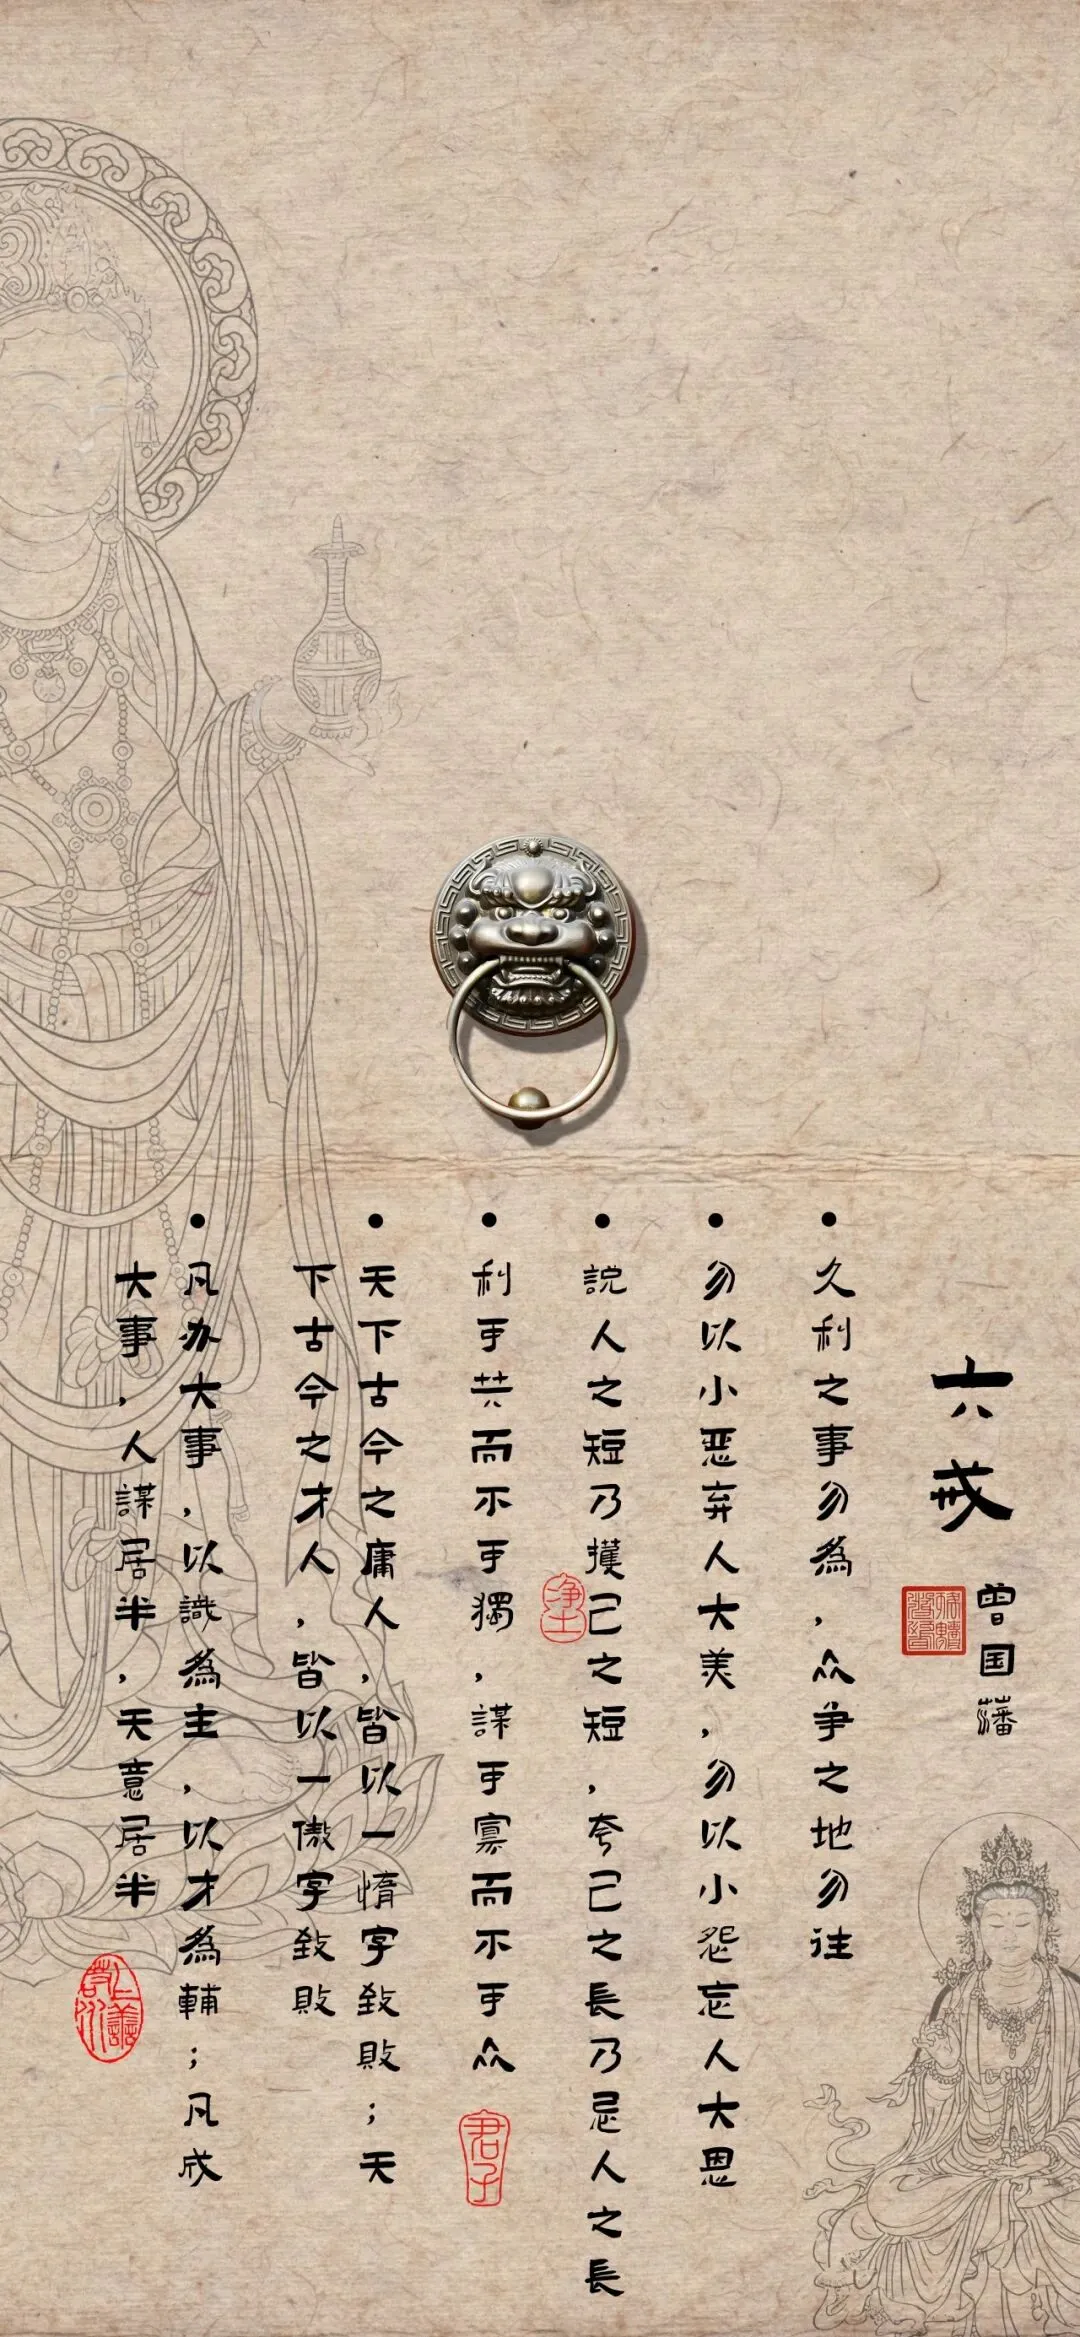 六戒
曾国藩
久利之事勿為，众争之地勿往
勿以小恶弃人大美，勿以小怨忘人大恩
説人之短乃護己之短，夸己之長乃忌人之長
利于共而不于獨，謀于寡而不于众
天下古今之庸人，皆以一惰字致敗；天
下古今之才人，皆以一傲字致敗
凡办大事，以識為主，以才為輔；凡成
大事，人謀居半，天意居半
净土
君子
上善若水